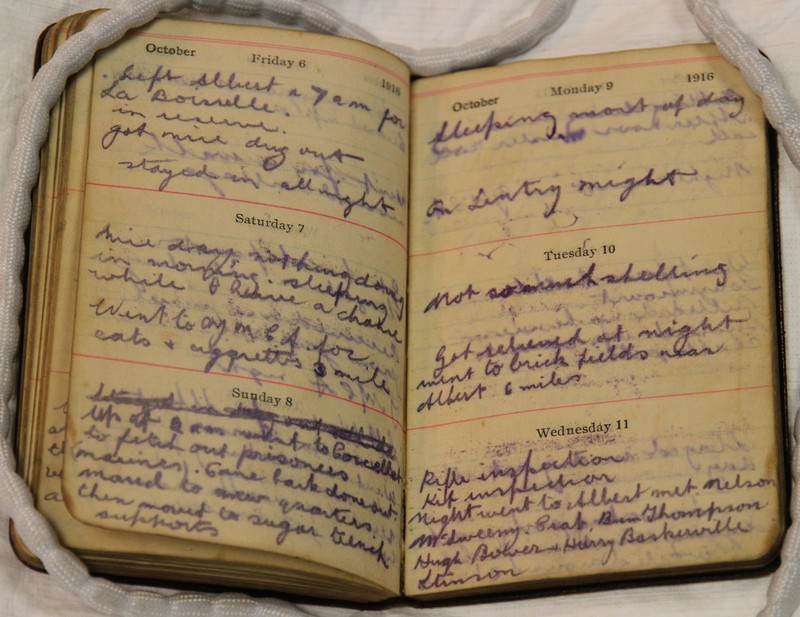 October Friday 6 1916
Left Albert a 7 am for
La Boisselle.
in reserve.
got nice dug out
stayed in all night
Saturday 7
Nice day, nothing doing
in morning. sleeping
while I have a chance
Went to Y M C A for
eats + ciggrettes 3 mile
Sunday 8
Up at 2 am went to Corcellet
to fetch out prisoners
(marines). Came back done out
moved to new quarters,
then moved to sugar trench
supports
October Monday 9 1916
Sleeping most of day
on Sentry night
Tuesday 10
Not so much shelling
Got relieved at night
went to brick fields near
Albert 6 miles
Wednesday 11
Rifle inspection
Kit inspection
Night went to Albert met Nelson
McSweeny. Thompson
Hugh Bower + Harry Baskerville
Stinson